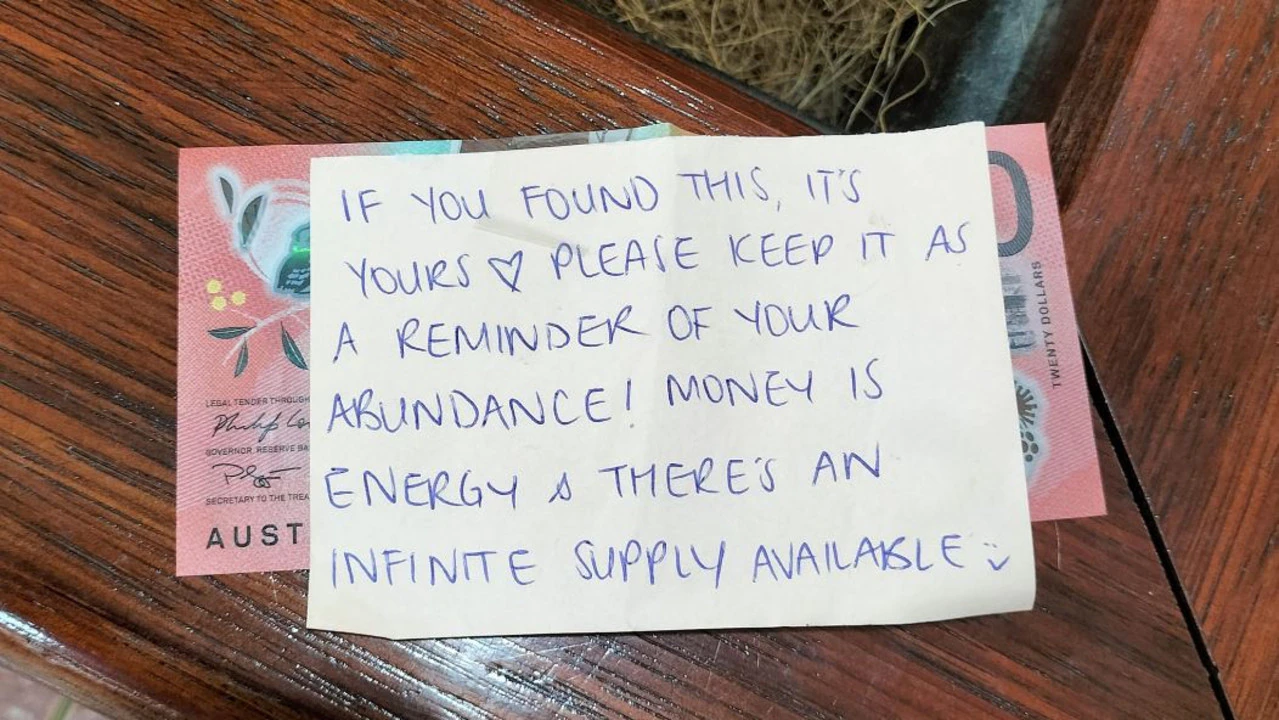 IF YOU FOUND THIS, IT'S
YOURS ♡ PLEASE KEEP IT AS
A REMINDER OF YOUR
ABUNDANCE! MONEY IS
ENERGY & THERE'S AN
INFINITE SUPPLY AVAILABLE :)
LEGAL TENDER THROUGH
GOVERNOR RESERVE BA
SECRETARY TO THE TREA
AUST
0
TWENTY DOLLARS